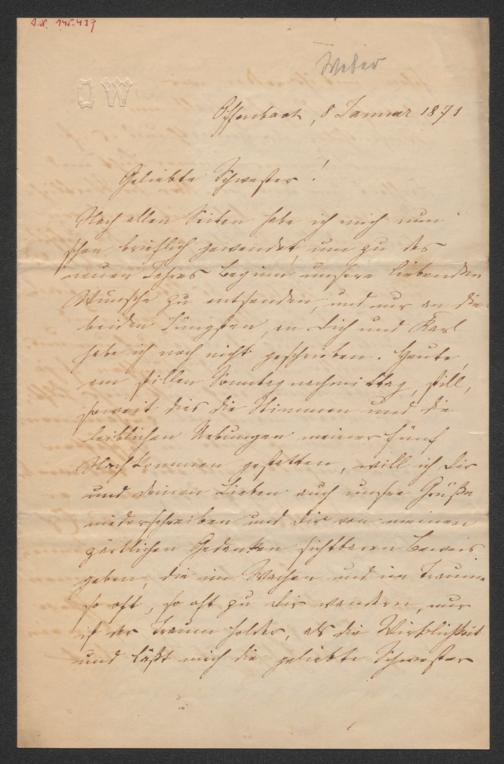 Weber
OW
Offenbach, 8 Januar 1871
Geliebte Schwester!
Nach allen Seiten habe ich mich nun
schon brieflich gewendet, um zu des
neuen Jahres Beginn unsere liebenden
Wünsche zu entsenden, und nur an die
beiden Jüngsten, an Dich und Karl
habe ich noch nicht geschrieben. Heute,
am stillen Sonntag nachmittag, still,
soweit dies die Stimmen und die
leiblichen Uebungen meiner fünf
Nachkommen gestatten, will ich Dir
und Deinen Lieben auch unsre Grüße
niederschreiben und Dir von meinen
zärtlichen Gedanken sichtbaren Beweis
geben, die im Wachen und im Traume
so oft, so oft zu Dir wandern, nur
ist der Traum holder, als die Wirklichkeit
und läßt mich die geliebte Schwester